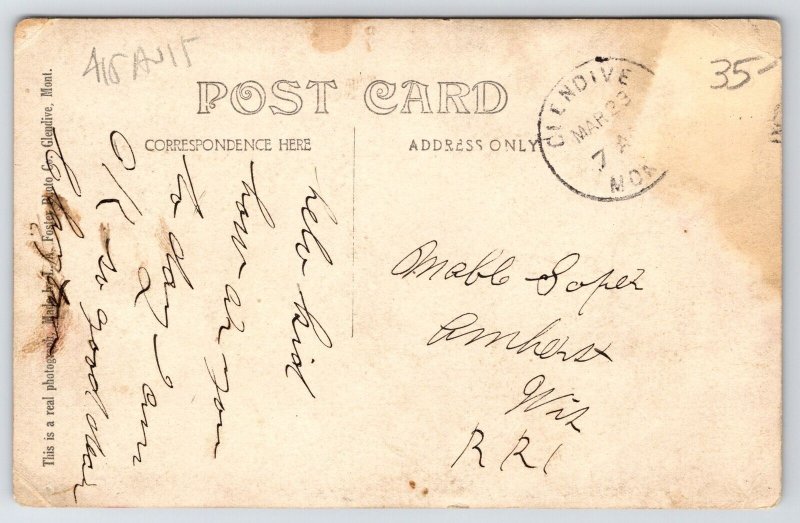 415 AV15
35-
POST CARD
CORRESPONDENCE HERE
ADDRESS ONLY
GLENDIVE
MAR 23
7 A
MON
hello kid
how ar you
to day I am
OK so good
Mable Soper
Amherst
Wis
R R 1
This is a real photograph, Made by L. A. Foster Photo Co. Glendive, Mont.